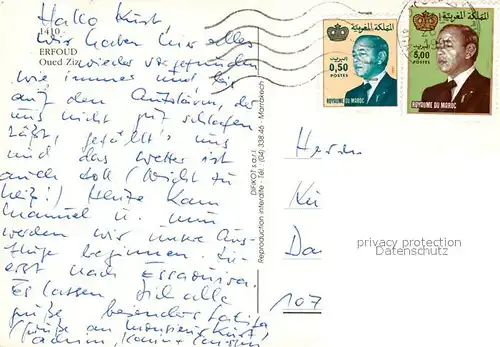 Hallo Kurt
1410 -
ERFOUD
Oued Ziz
wir haben hier alles
wieder vorgefunden
wie immer und bis
auf den
uns nicht gut schlafen
läßt, gefällt's uns
und das Wetter ist
auch toll (nicht zu
heiß!) Heute kam
Manuel u. nun
werden wir unsere Aus-
flüge beginnen. Zu-
erst nach Essaouira.
Es lassen Dich alle
grüße besonders Latifa
(Grüße an Monsieur Kurt)
DIFIKOT s.a.r.l.
Reproduction interdite - Tél. (04) 338.46 - Marrakech
المملكة المغربية
البريد
0,50
POSTES
ROYAUME DU MAROC
المملكة المغربية
البريد
5,00
POSTES
ROYAUME DU MAROC
Herrn
Kü
Da
107
privacy protection
Datenschutz